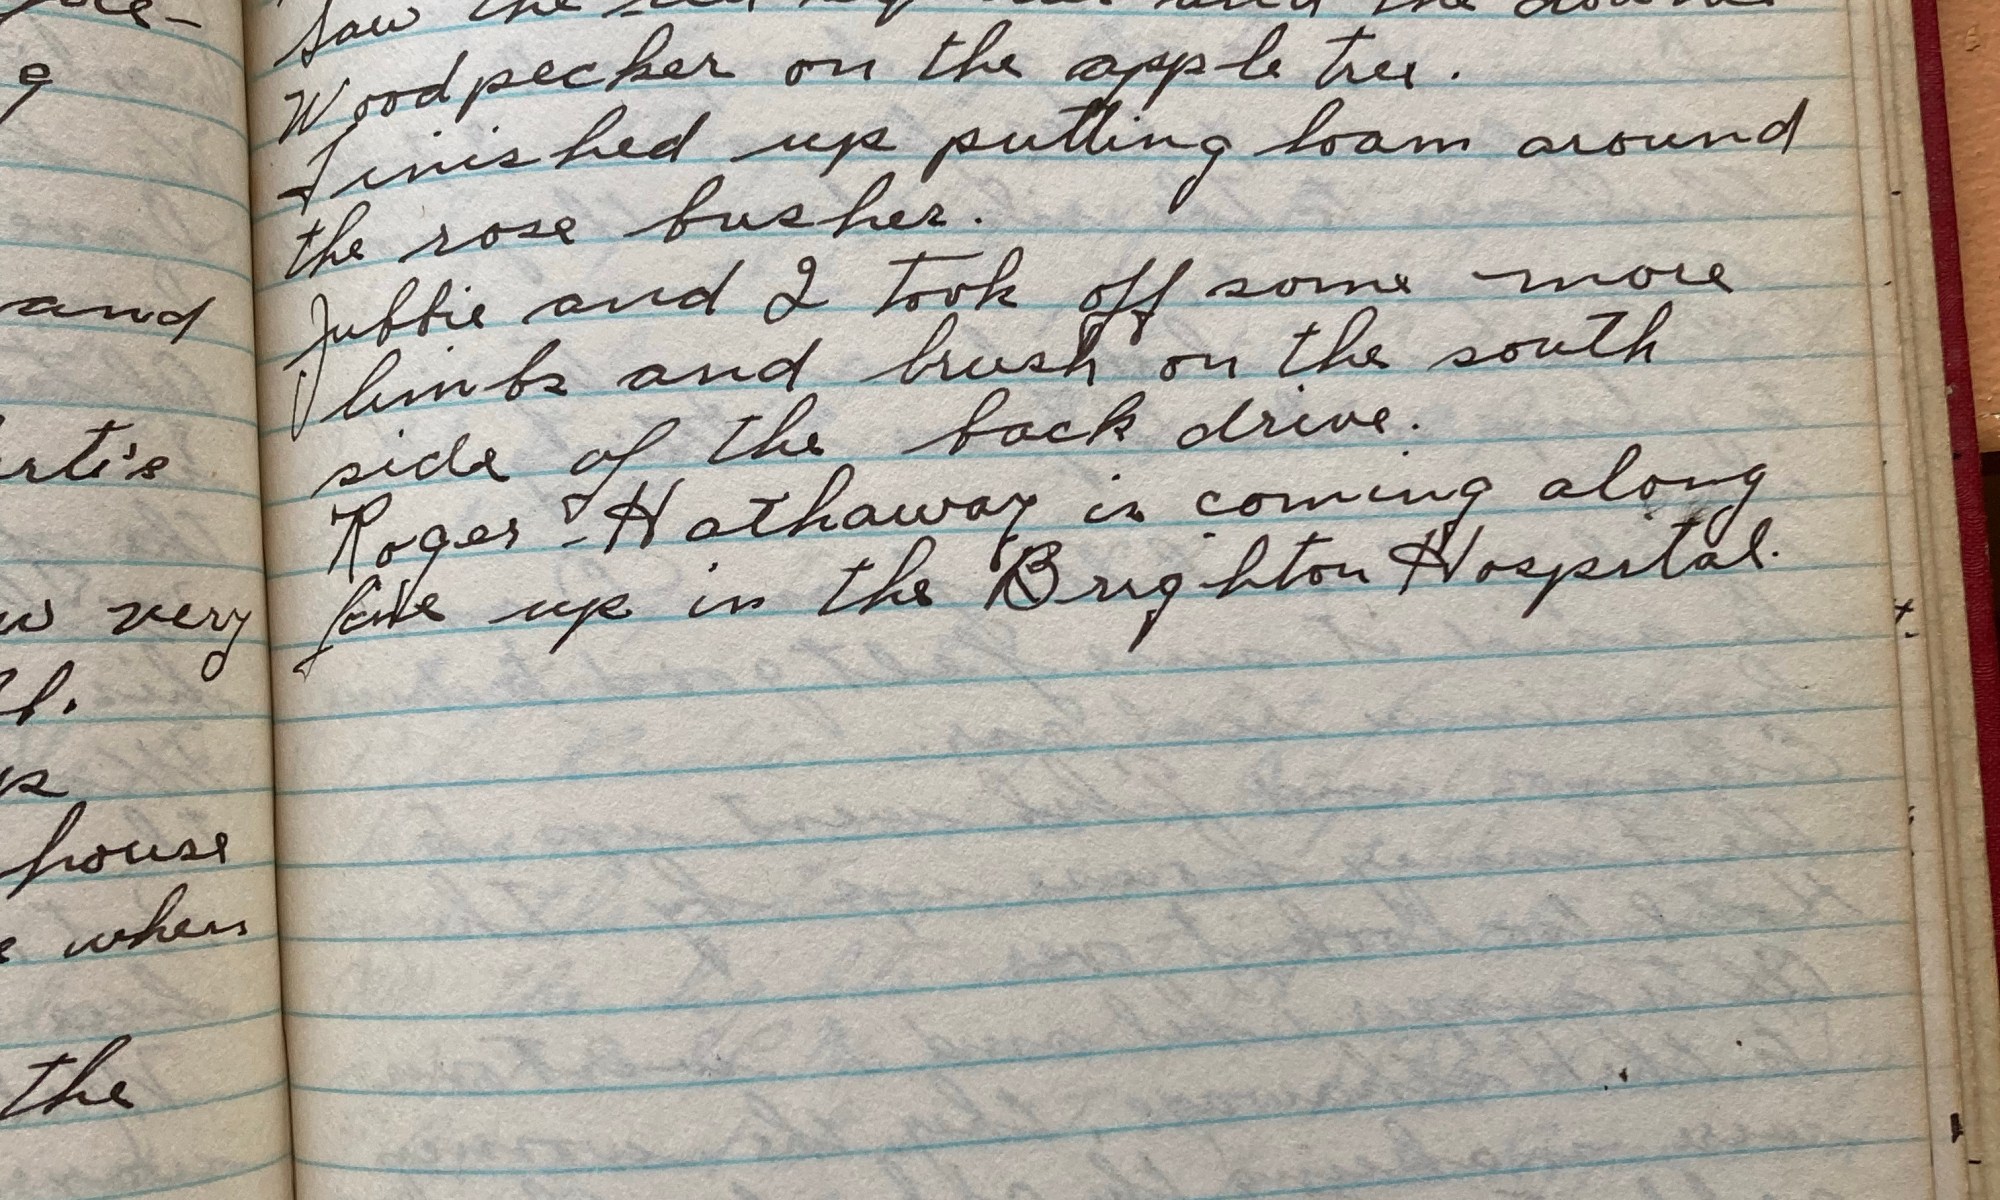 and
very
house
when
the
Saw the and the
Woodpecker on the apple tree.
Finished up putting loam around
the rose bushes.
Jubbie and I took off some more
limbs and brush on the south
side of the back drive.
Roger Hathaway is coming along
fine up in the Brighton Hospital.